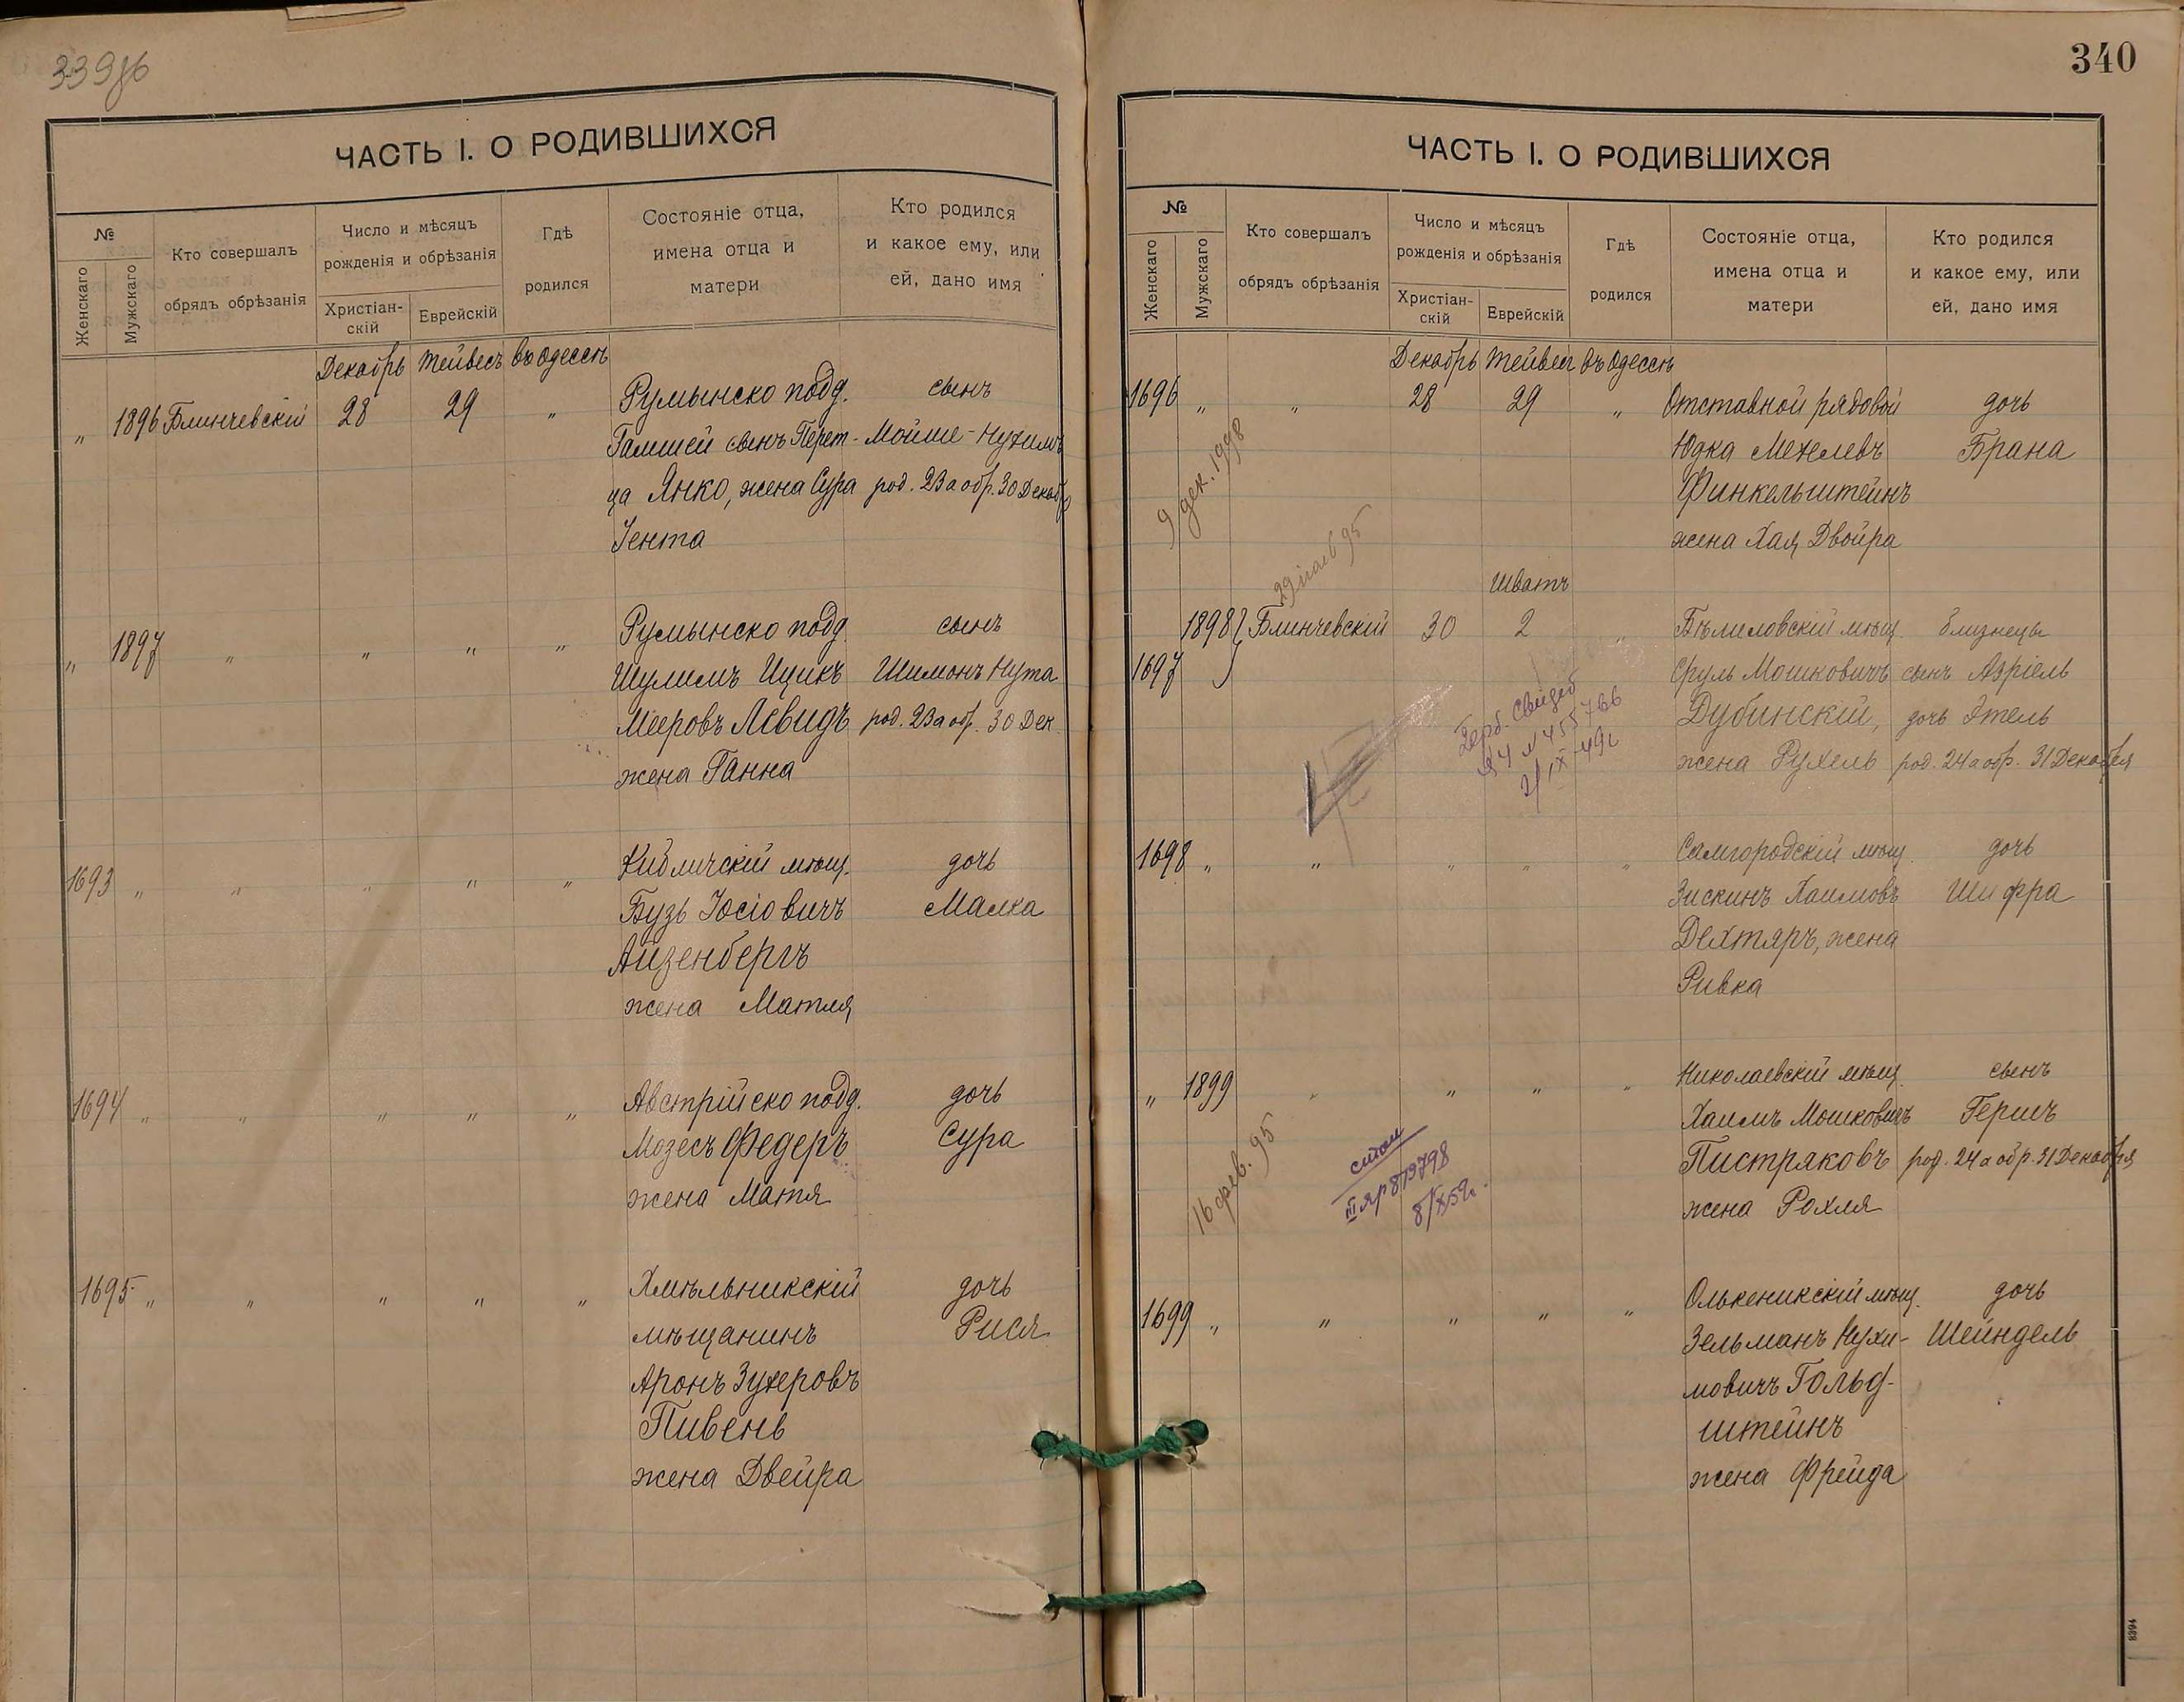 340
ЧАСТЬ I. О РОДИВШИХСЯ
№
Женскаго
Мужскаго
Кто совершалъ
обрядъ обрѣзанія
Число и мѣсяцъ
рожденія и обрѣзанія
Христіан-
скій
Еврейскій
Гдѣ
родился
Состояніе отца,
имена отца и
матери
Кто родился
и какое ему, или
ей, дано имя
Декабрь Тейвесъ въ Одессѣ
„ 1896 Блинчевскій 28 29 „ Румынско подд. сынъ
сынъ Перет- Мойше-Нухимъ
ца Янко, жена Сура род. 23 а обр. 30 Декабр
Іента
„ 1897 „ „ „ „ Румынско подд. сынъ
Шулимъ Ицикъ Шимонъ Нута
Мееровъ Лєвидъ род. 23 а обр. 30 Дек.
жена Ганна
1693 „ „ „ „ „ Кибличскій мѣщ. дочь
Бузь Іосіовичъ Малка
Айзенбергъ
жена Матля
1694 „ „ „ „ „ Австрійско подд. дочь
Мозесъ Федеръ Сура
жена Матя
1695 „ „ „ „ „ Хмѣльникскій дочь
мѣщанинъ Рися
Аронъ Зухеровъ
Пивень
жена Двейра
ЧАСТЬ I. О РОДИВШИХСЯ
№
Женскаго
Мужскаго
Кто совершалъ
обрядъ обрѣзанія
Число и мѣсяцъ
рожденія и обрѣзанія
Христіан-
скій
Еврейскій
Гдѣ
родился
Состояніе отца,
имена отца и
матери
Кто родился
и какое ему, или
ей, дано имя
Декабрь Тейвесъ въ Одессѣ
1696 „ „ 28 29 „ Отставной рядовой дочь
Юдка Мехелевъ Брана
Финкельштейнъ
жена Хая Двойра
9 дек. 1998
Шватъ
1898 Блинчевскій 30 2 „ мѣщ. близнецы
1697 Сруль Мошковичъ сынъ Азріель
Дубинскій, дочь Этель
жена Рухель род. 24 а обр. 31 Декабря
1698 „ „ „ „ „ Самгородскій мѣщ. дочь
Зискинъ Хаимовъ Шифра
Дехтяръ, жена
Ривка
„ 1899 „ „ „ „ Николаевскій мѣщ. сынъ
Хаимъ Мошковичъ Гершъ
Пистряковъ род. 24 а обр. 31 Декабря
жена Рохля
16 фев. 95
1699 „ „ „ „ „ Олькеникскій мѣщ. дочь
Зельманъ Нухи- Шейндель
мовичъ Гольд-
штейнъ
жена Фрейда
8394